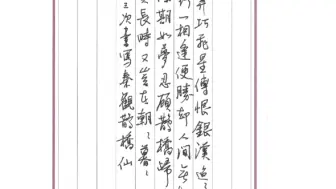 巧飛星傳恨銀漢迢〻
一相逢便勝却人間無
期如夢忍顧鵲橋歸
長時又豈在朝〻暮〻
次書寫秦觀鵲橋仙